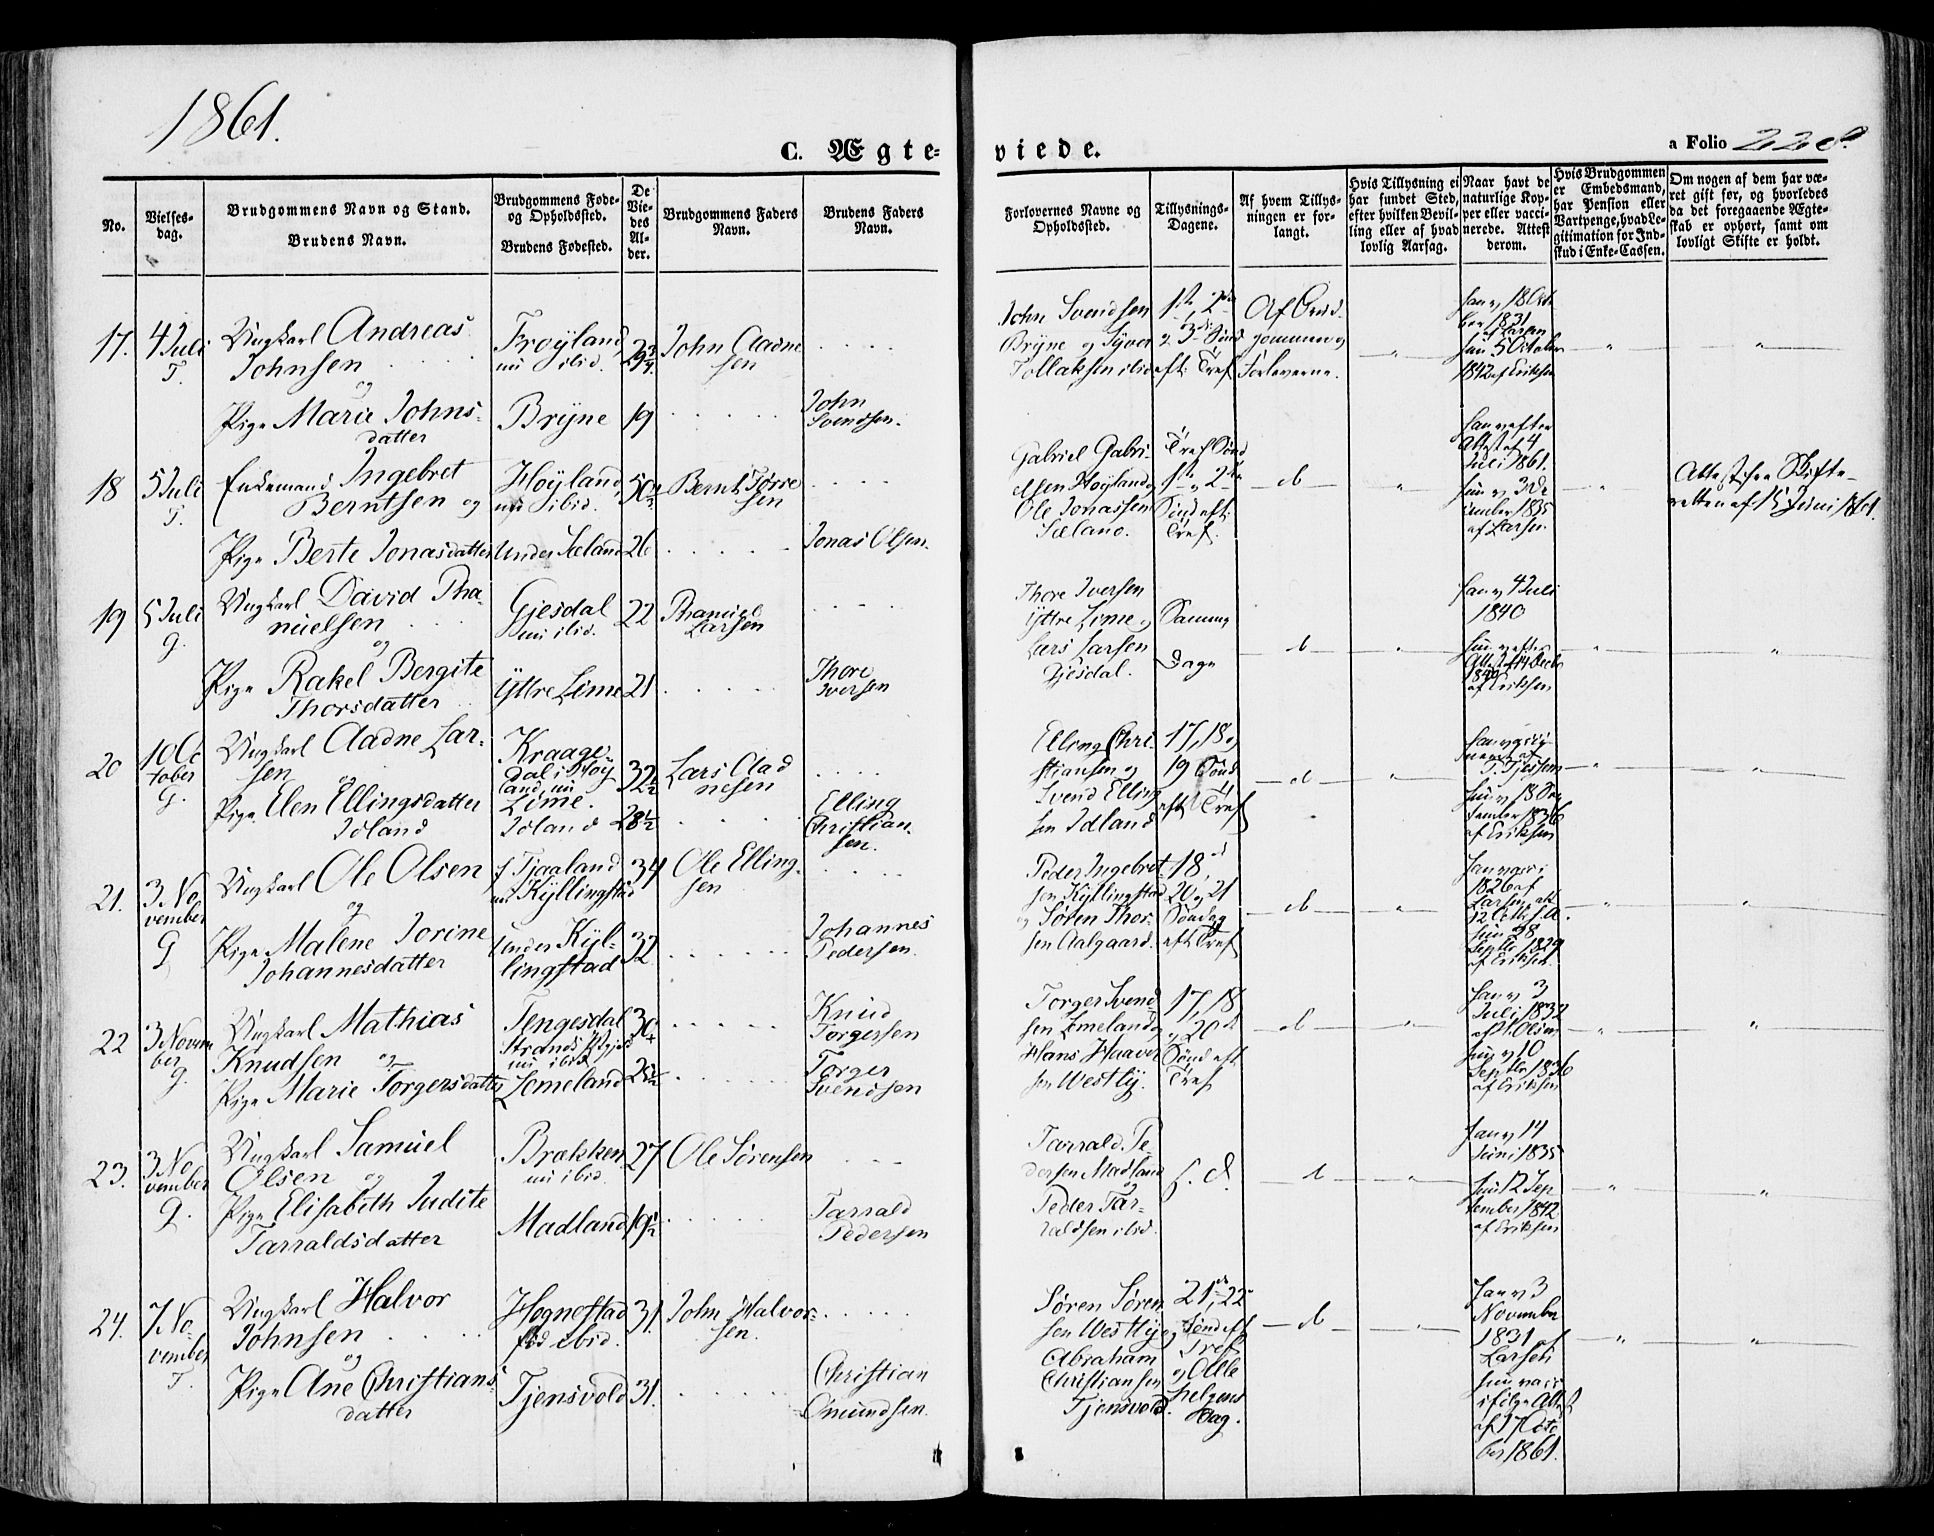 1861.
C. Ægte-
viede.
a Folio 228.
No.
Vielses-
dag.
Brudgommens Navn og Stand.
Brudens Navn.
Brudgommens Føde-
og Opholdssted.
Brudens Fødested.
De
Vie-
des
Al-
der.
Brudgommens Faders
Navn.
Brudens Faders
Navn.
Forlovernes Navne og
Opholdssted.
Tillysnings-
Dagene.
Af hvem Tillys-
ningen er for-
langt.
Hvis Tillysning ei
har fundet Sted,
efter hvilken Bevil-
ling eller af hvad
lovlig Aarsag.
Naar havt de
naturlige Kop-
per eller vacci-
nerede. Attest
derom.
Hvis Brudgommen
er Embedsmand,
har Pension eller
Vartpenge, hvad Le-
gitimation for Ind-
skud i Enke-Cassen.
Om nogen af dem har væ-
ret gift før, og hvorledes
da det foregaaende Ægte-
skab er ophørt, samt om
lovligt Skifte er holdt.
17.
4 Juli
T.
Ungkarl Andreas
Johnsen
og
Pige Marie Johns-
datter
Frøyland,
nu ibid.
Bryne
19
John Aadne
sen
John
Svendsen.
John Svendsen
Bryne og Syver
Tollaksen ibid
1ste, 2den
og 3die Sønd
eft: Tref
Af Brud-
gommen og
Forloverne.
han v. 18 Octo
ber 1831
af Larsen
hun 5 October
1842 af Eriksen
18
5 Juli
T.
Enkemand Ingebret
Berntsen og
Pige Berte Jonasdatter
Høyland,
nu ibid.
Under Sæland
50½
26
Bernt Tørre
sen
Jonas Olsen.
Gabriel Gabri-
elsen Høyland og
Ole Jonassen
Sæland.
Tref Sønd
1ste, 2den
Sønd eft:
Tref.
d
han v. efter
Attest af 4
Juli 1861.
hun v. 3 De
cember 1835
af Larsen
Attest fra Skifte-
retten af 15 Juni 1861.
19
5 Juli
G.
Ungkarl David Tha-
nuelsen
og
Pige Rakel Bergite
Thorsdatter
Gjesdal
nu ibid.
Yttre Lime
22
21
Thanuel
Larsen
Thore
Iversen
Thore Iversen
Yttre Lime og
Lars Larsen
Gjesdal.
Samme
Dage
d
han v. 4 Juli
1840
hun v. efter
1840
af Eriksen
20
10 Oc
tober
G.
Ungkarl Aadne Lar-
sen
og
Pige Elen Ellingsdatter
Idland
Kraage
dal i Høy
land, nu
Lime.
Idland
32½
28½
Lars Aad
nesen
Elling
Christian-
sen.
Elling Chri-
stiansen og
Svend Elling
sen Idland
17, 18 og
19 Sønd
eft Tref
d
hun v. 18 Sep
tember 1836
af Eriksen
21.
3 No
vember
G
Ungkarl Ole Olsen
og
Pige Malene Jorine
Johannesdatter
f. Tjaaland
nu Kyllingstad
Under Kyl-
lingstad
34
32
Ole Elling-
sen
Johannes
Pedersen.
Peder Ingebret-
sen Kyllingstad
og Søren Thor-
sen Aalgaard.
18,
20 og 21
Søndag
eft Tref
d
1826 af
Larsen, att
12 Octbr. s. A.
hun 28
Septbr 1829
af Eriksen.
22
3 Novem
ber
G.
Ungkarl Mathias
Knudsen og
Pige Marie Torgersdatter
Tengesdal
Strands Pgjeld
nu ibid
Lemeland
Knud
Torgersen
Torger
Svendsen
Torger Svend
sen Lemeland og
Hans Haaver
sen Westly.
17, 18
og 20de
Sønd eft
Tref
d
han v. 3
Juli 1832
af H. Olsen
hun v. 10
Septbr 1836
af Eriksen
23.
3 No
vember
G.
Ungkarl Samuel
Olsen og
Pige Elisabeth Judite
Tarraldsdatter
Brækken
nu ibid.
Madland
27
19½
Ole Sørensen
Tarrald
Pedersen
Tarrald Pe-
dersen Madland
og
Peder Tar-
raldsen ibid.
s. d.
d
han v. 14
Juni 1835
hun 12 Sep
tember 1842
af Eriksen
24.
7 No-
vember
T.
Ungkarl Halvor
Johnsen
og
Pige Ane Christians-
datter
Hognestad
fød ibid.
Tjensvold
31
31.
John Halvor-
sen.
Christian
Omundsen.
Søren Søren
sen Westly og
Abraham
Christiansen
Tjensvold.
21de, 22
Sønd eft
Tref
og Alle
helgens
Dag.
d
han v. 3
November
1831 af
Larsen
hun vac:
ifølge Attest
af 17 Octo
ber 1861.